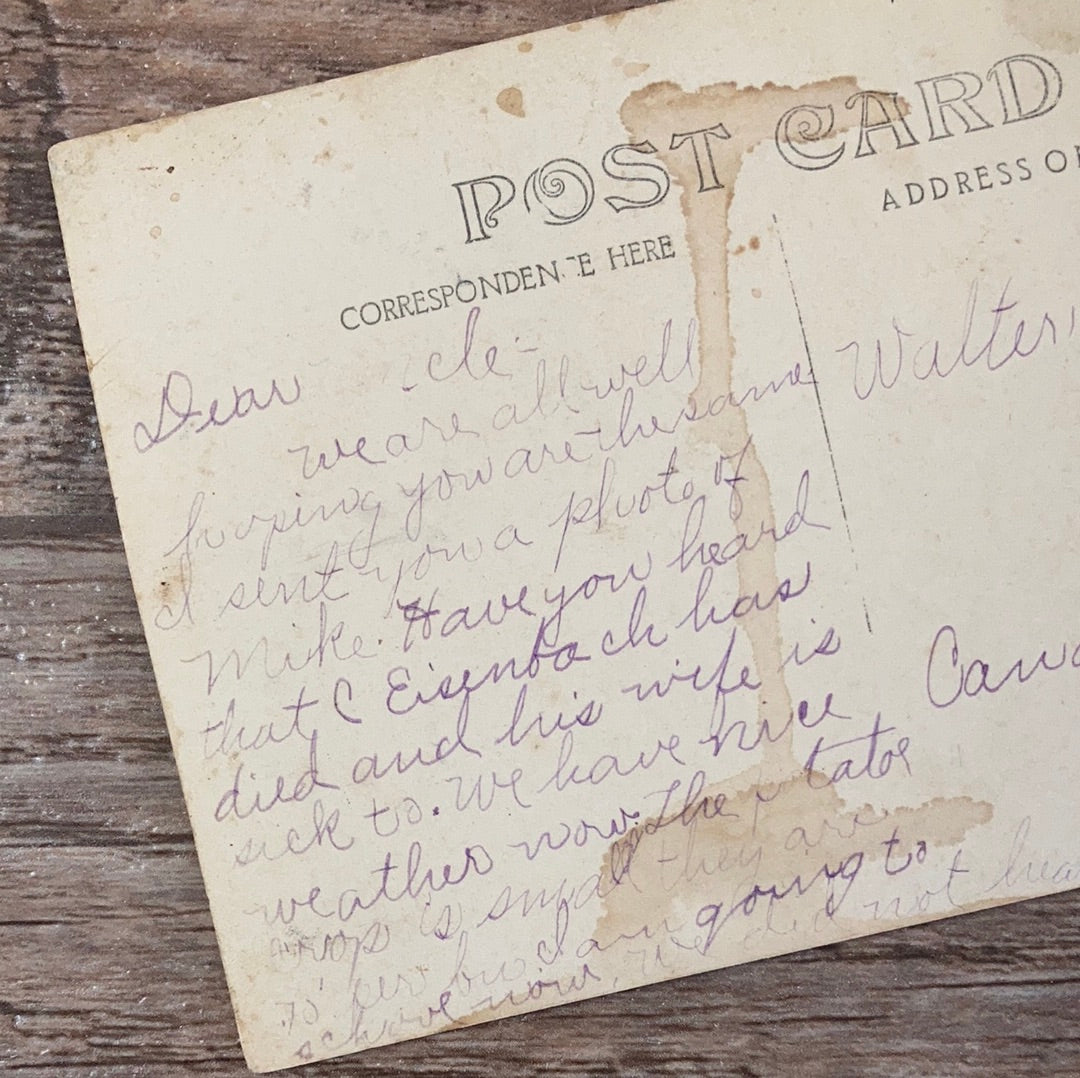 POST CARD
CORRESPONDEN E HERE
ADDRESS O
Dear cle-
we are all well
hoping you are the same
I sent you a photo of
Mike. Have you heard
that C Eisenbach has
died and his wife is
sick to. We have nice
weather now. The p tatoe
crop is small they are
I am going to
schooe now. We did not hear
Walter
Cana